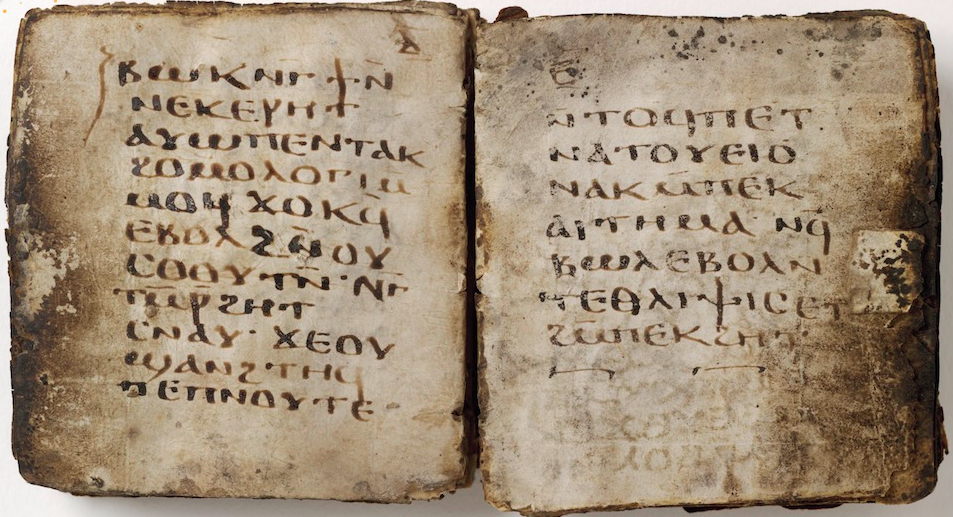 ⲇ̄
ⲃⲱⲕ ⲛⲅ̄ϯⲛ̄
ⲛⲉⲕⲉⲣⲏⲧ
ⲁⲩⲱⲡⲉⲛⲧⲁⲕ
ϩⲟⲙⲟⲗⲟⲅⲓⲙ̄
ⲙⲟϥ ϫⲟⲕϥ̄
ⲉⲃⲟⲗ ϩⲛ̄ⲟⲩ
ⲥⲟⲟⲩⲧⲛ̄·ⲛⲅ̄
ⲧⲙ̄ⲣ̄ϩⲏⲧ
ⲥⲛⲁⲩ· ϫⲉⲟⲩ
ϣⲁⲛϩⲧⲏϥ
ⲡⲉⲡⲛⲟⲩⲧⲉ·
ⲉ̄
ⲛ̄ⲧⲟϥⲡⲉⲧ
ⲛⲁⲧⲟⲩⲉⲓⲟ
ⲛⲁⲕⲙ̄ⲡⲉⲕ
ⲁⲓⲧⲏⲙⲁ ⲛϥ̄
ⲃⲱⲗⲉⲃⲟⲗⲛ̄
ⲧⲉⲑⲗⲓⲯⲓⲥⲉⲧ
ϩⲙ̄ⲡⲉⲕϩⲏⲧ·